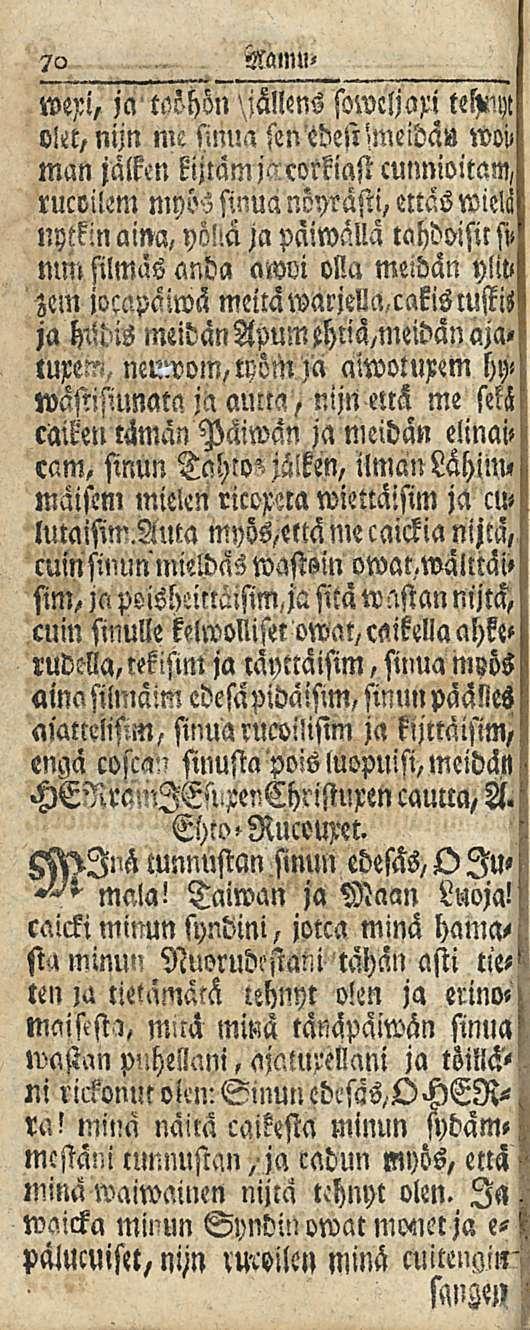 70 Aamu⸗
wexi, ja työhön jällens soweljaxi tehnyt
olet, nijn me sinua sen edest meidän woi⸗
man jälken kijtäm ja corkiast cunnioitam,
rucoilem myös sinua nöyrästi, ettäs wielä
nytkin aina, yöllä ja päiwällä tahdoisit si⸗
nun silmäs anda awoi olla meidän ylit⸗
zem jocapäiwä meitä warjella, cakis tuskis
ja hädis meidän Apum yhtiä, meidän aja⸗
tuxem, neuwom, työm ja aiwotuxem hy⸗
wästisiunata ja autta, nijn että me sekä
caiken tämän Päiwän ja meidän elinai⸗
cam, sinun Tahtos jälken, ilman Lähim⸗
mäisem mielen ricoxeta wiettäisim ja cu⸗
lutaisim. Auta myös, että me caickia nijtä,
cuin sinun mieldäs wastoin owat, wälttäi⸗
sim, ja poisheittäisim, ja sitä wastan nijtä,
cuin sinulle kelwolliset owat, caikella ahke⸗
rudella, tekisim ja täyttäisim, sinua myös
aina silmäim edesä pidäisim, sinun päälles
ajattelisim, sinua rucoilisim ja kijttäisim,
engä coscan sinusta pois luopuisi, meidän
HERram JEsuxen Christuxen cautta, A.
Ehto⸗Rucouxet.
MInä tunnustan sinun edesäs, O Ju⸗
mala! Taiwan ja Maan Luoja!
caicki minun syndini, jotca minä hama⸗
sta minun Nuorudestani tähän asti tie⸗
ten ja tietämätä tehnyt olen ja erino⸗
maisesta, mitä minä tänäpäiwän sinua
wastan puhellani, ajatuxellani ja töillä⸗
ni rickonut olen: Sinun edesäs, O HER⸗
ra! minä näitä caikesta minun sydäm⸗
mestäni tunnustan, ja cadun myös, että
minä waiwainen nijtä tehnyt olen. Ja
waicka minun Syndin owat monet ja e⸗
pälucuiset, nijn rucoilen minä cuitengin
sangen